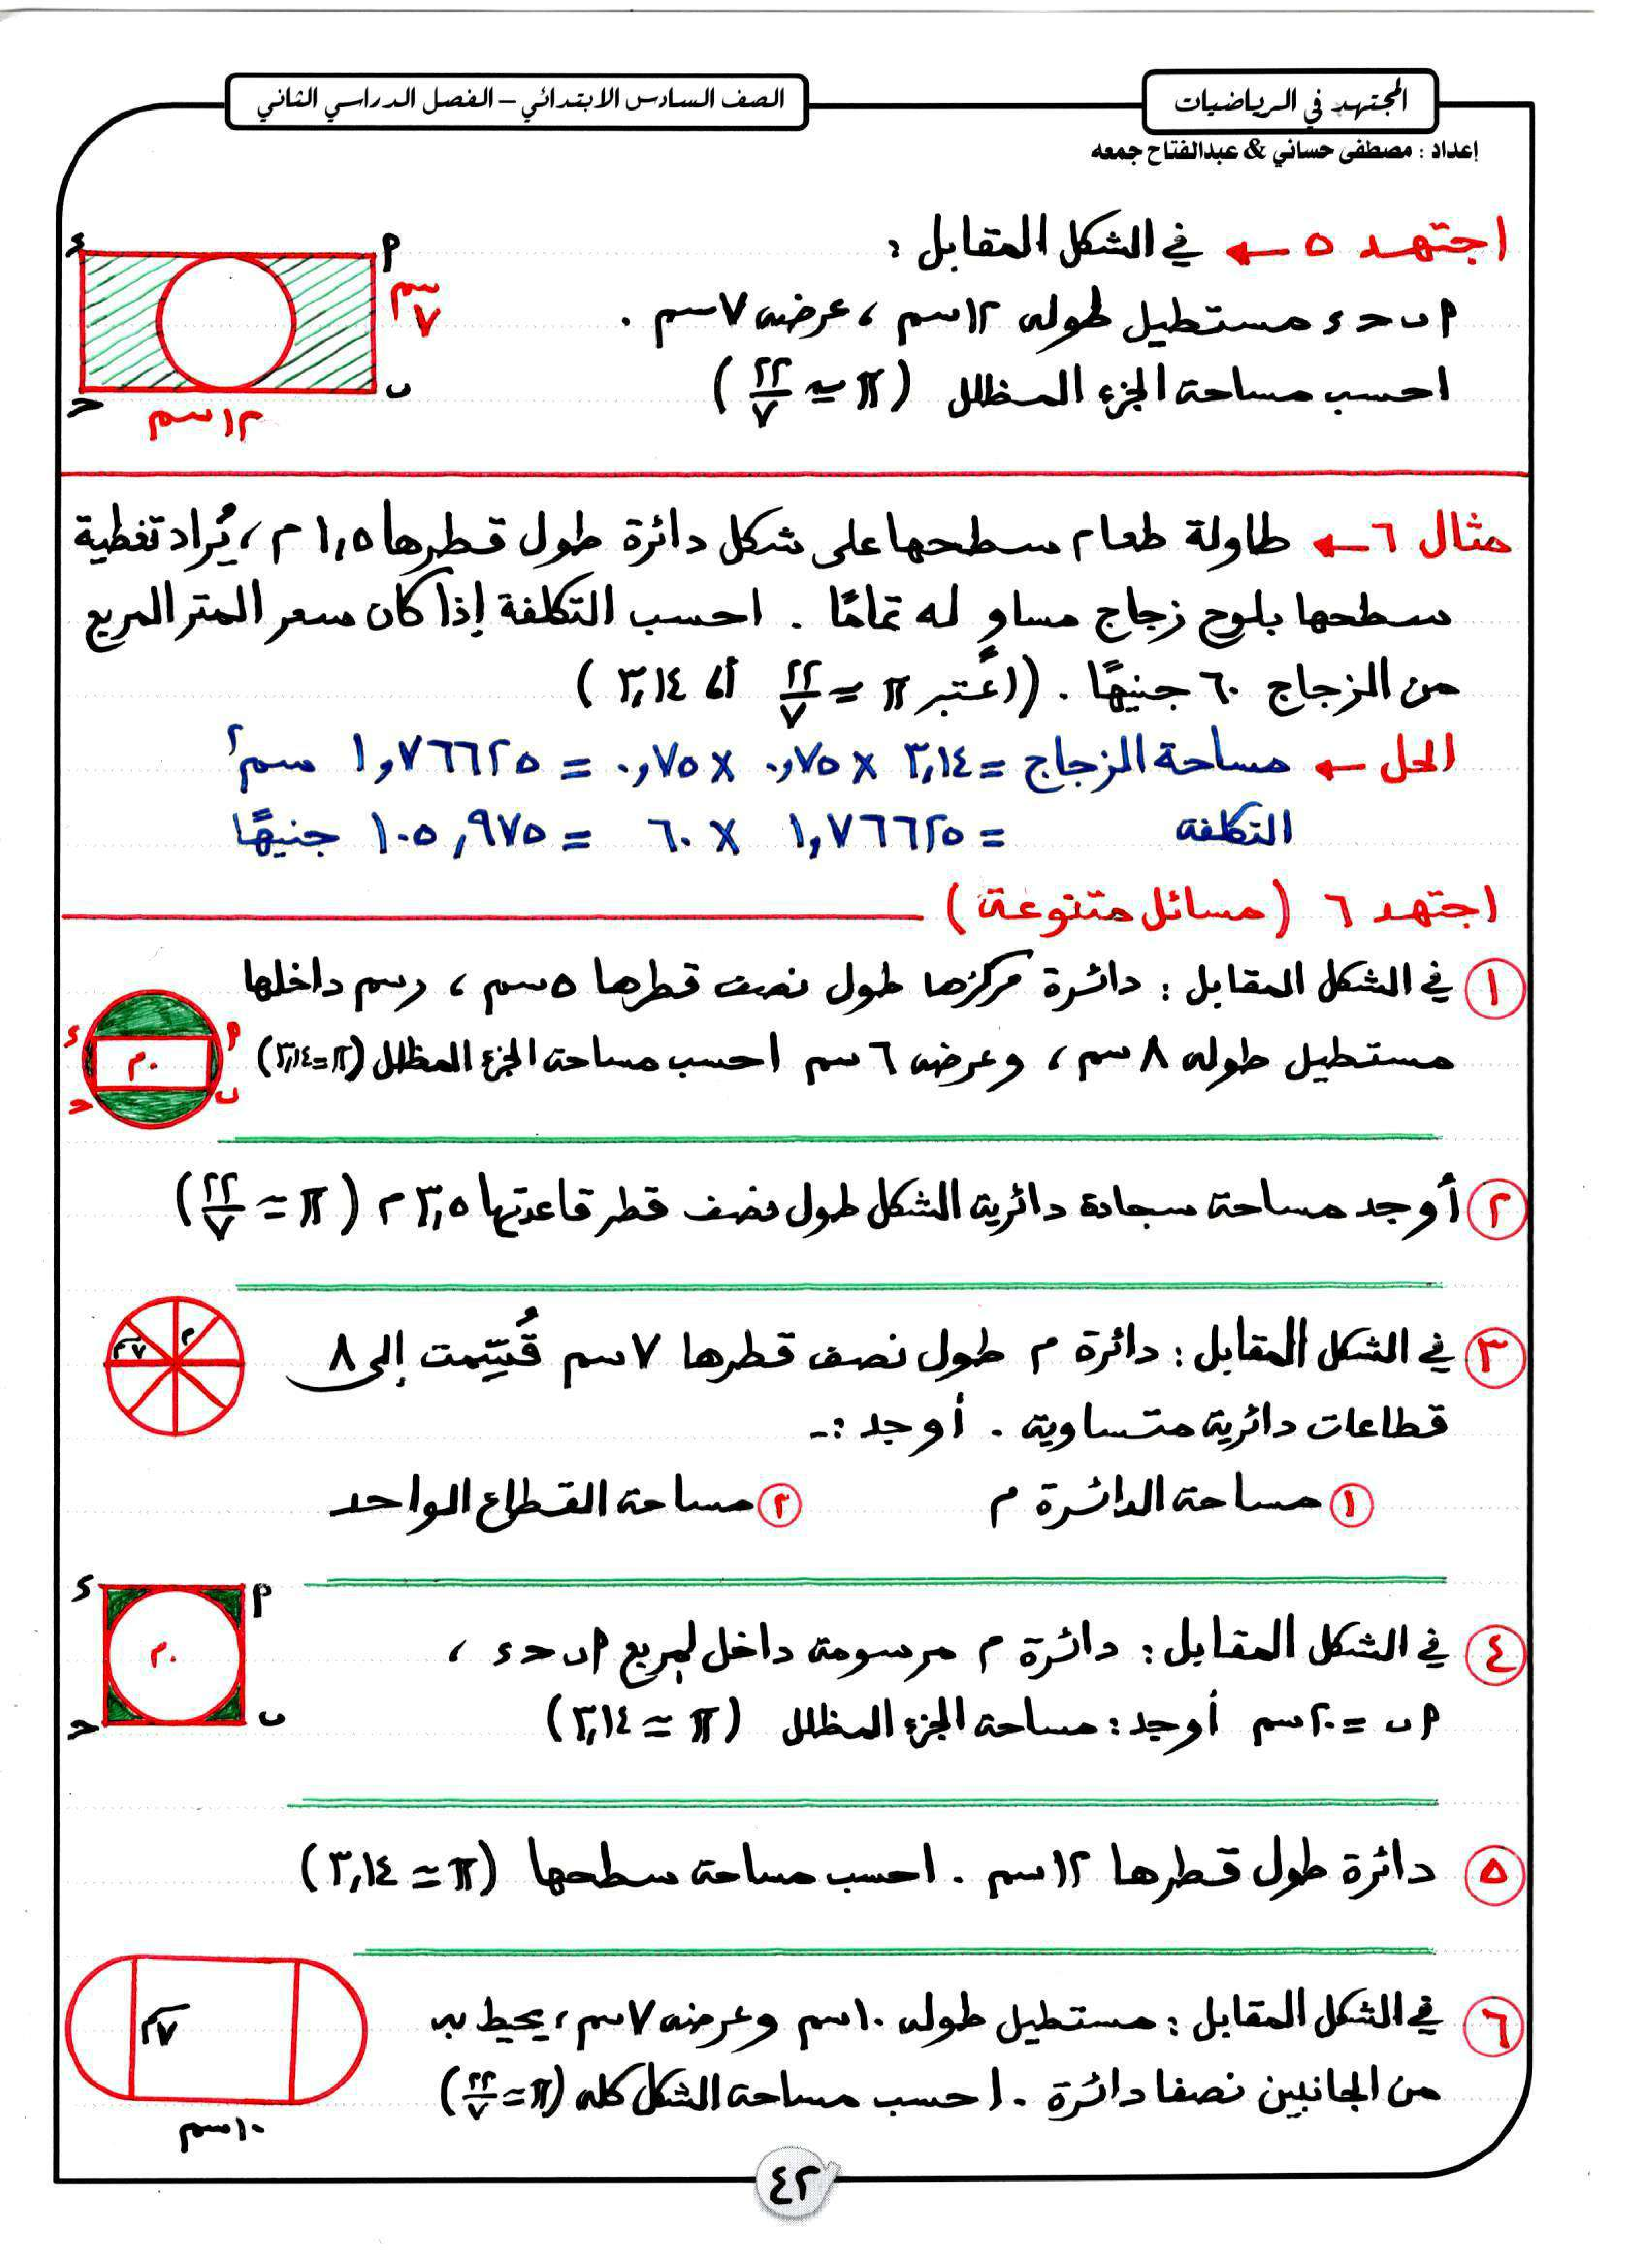 المجتهد في الرياضيات
الصف السادس الابتدائي – الفصل الدراسي الثاني
إعداد : مصطفى حساني & عبدالفتاح جمعه
اجتهد ٥ ← في الشكل المقابل :
٩ ب ح ء مستطيل طوله ١٢ سم ، عرضه ٧ سم .
احسب مساحة الجزء المظلل ( π ≃ ٢٢/٧ )
ء
٩
٧ سم
ب
ح
١٢ سم
مثال ٦ ← طاولة طعام سطحها على شكل دائرة طول قطرها ١,٥ م ، يُراد تغطية
سطحها بلوح زجاج مساوٍ له تمامًا . احسب التكلفة إذا كان سعر المتر المربع
من الزجاج ٦٠ جنيهًا . ( اعتبر π ≃ ٢٢/٧ أ، ٣,١٤ )
الحل ← مساحة الزجاج = ٣,١٤ × ٠,٧٥ × ٠,٧٥ = ١,٧٦٦٢٥ سم٢
التكلفة = ١,٧٦٦٢٥ × ٦٠ = ١٠٥,٩٧٥ جنيهًا
اجتهد ٦ ( مسائل متنوعة )
١ في الشكل المقابل : دائرة مركزها طول نصف قطرها ٥ سم ، رسم داخلها
مستطيل طوله ٨ سم ، وعرضه ٦ سم احسب مساحة الجزء المظلل (π = ٣,١٤)
ء
٩
م
ح
ب
٢ أوجد مساحة سجادة دائرية الشكل طول نصف قطر قاعدتها ٣,٥ م ( π ≃ ٢٢/٧ )
٣ في الشكل المقابل : دائرة م طول نصف قطرها ٧ سم قُسِّمت إلى ٨
قطاعات دائرية متساوية . أوجد :-
م
٧ سم
١ مساحة الدائرة م ٢ مساحة القطاع الواحد
٤ في الشكل المقابل : دائرة م مرسومة داخل لمربع ٩ ب ح ء ،
٩ ب = ٢٠ سم أوجد : مساحة الجزء المظلل ( π ≃ ٣,١٤ )
ء
٩
م
ح
ب
٥ دائرة طول قطرها ١٢ سم . احسب مساحة سطحها ( π ≃ ٣,١٤ )
٦ في الشكل المقابل : مستطيل طوله ١٠ سم وعرضه ٧ سم ، يحيط به
من الجانبين نصفا دائرة . احسب مساحة الشكل كله ( π ≃ ٢٢/٧ )
٧ سم
١٠ سم
٤٢